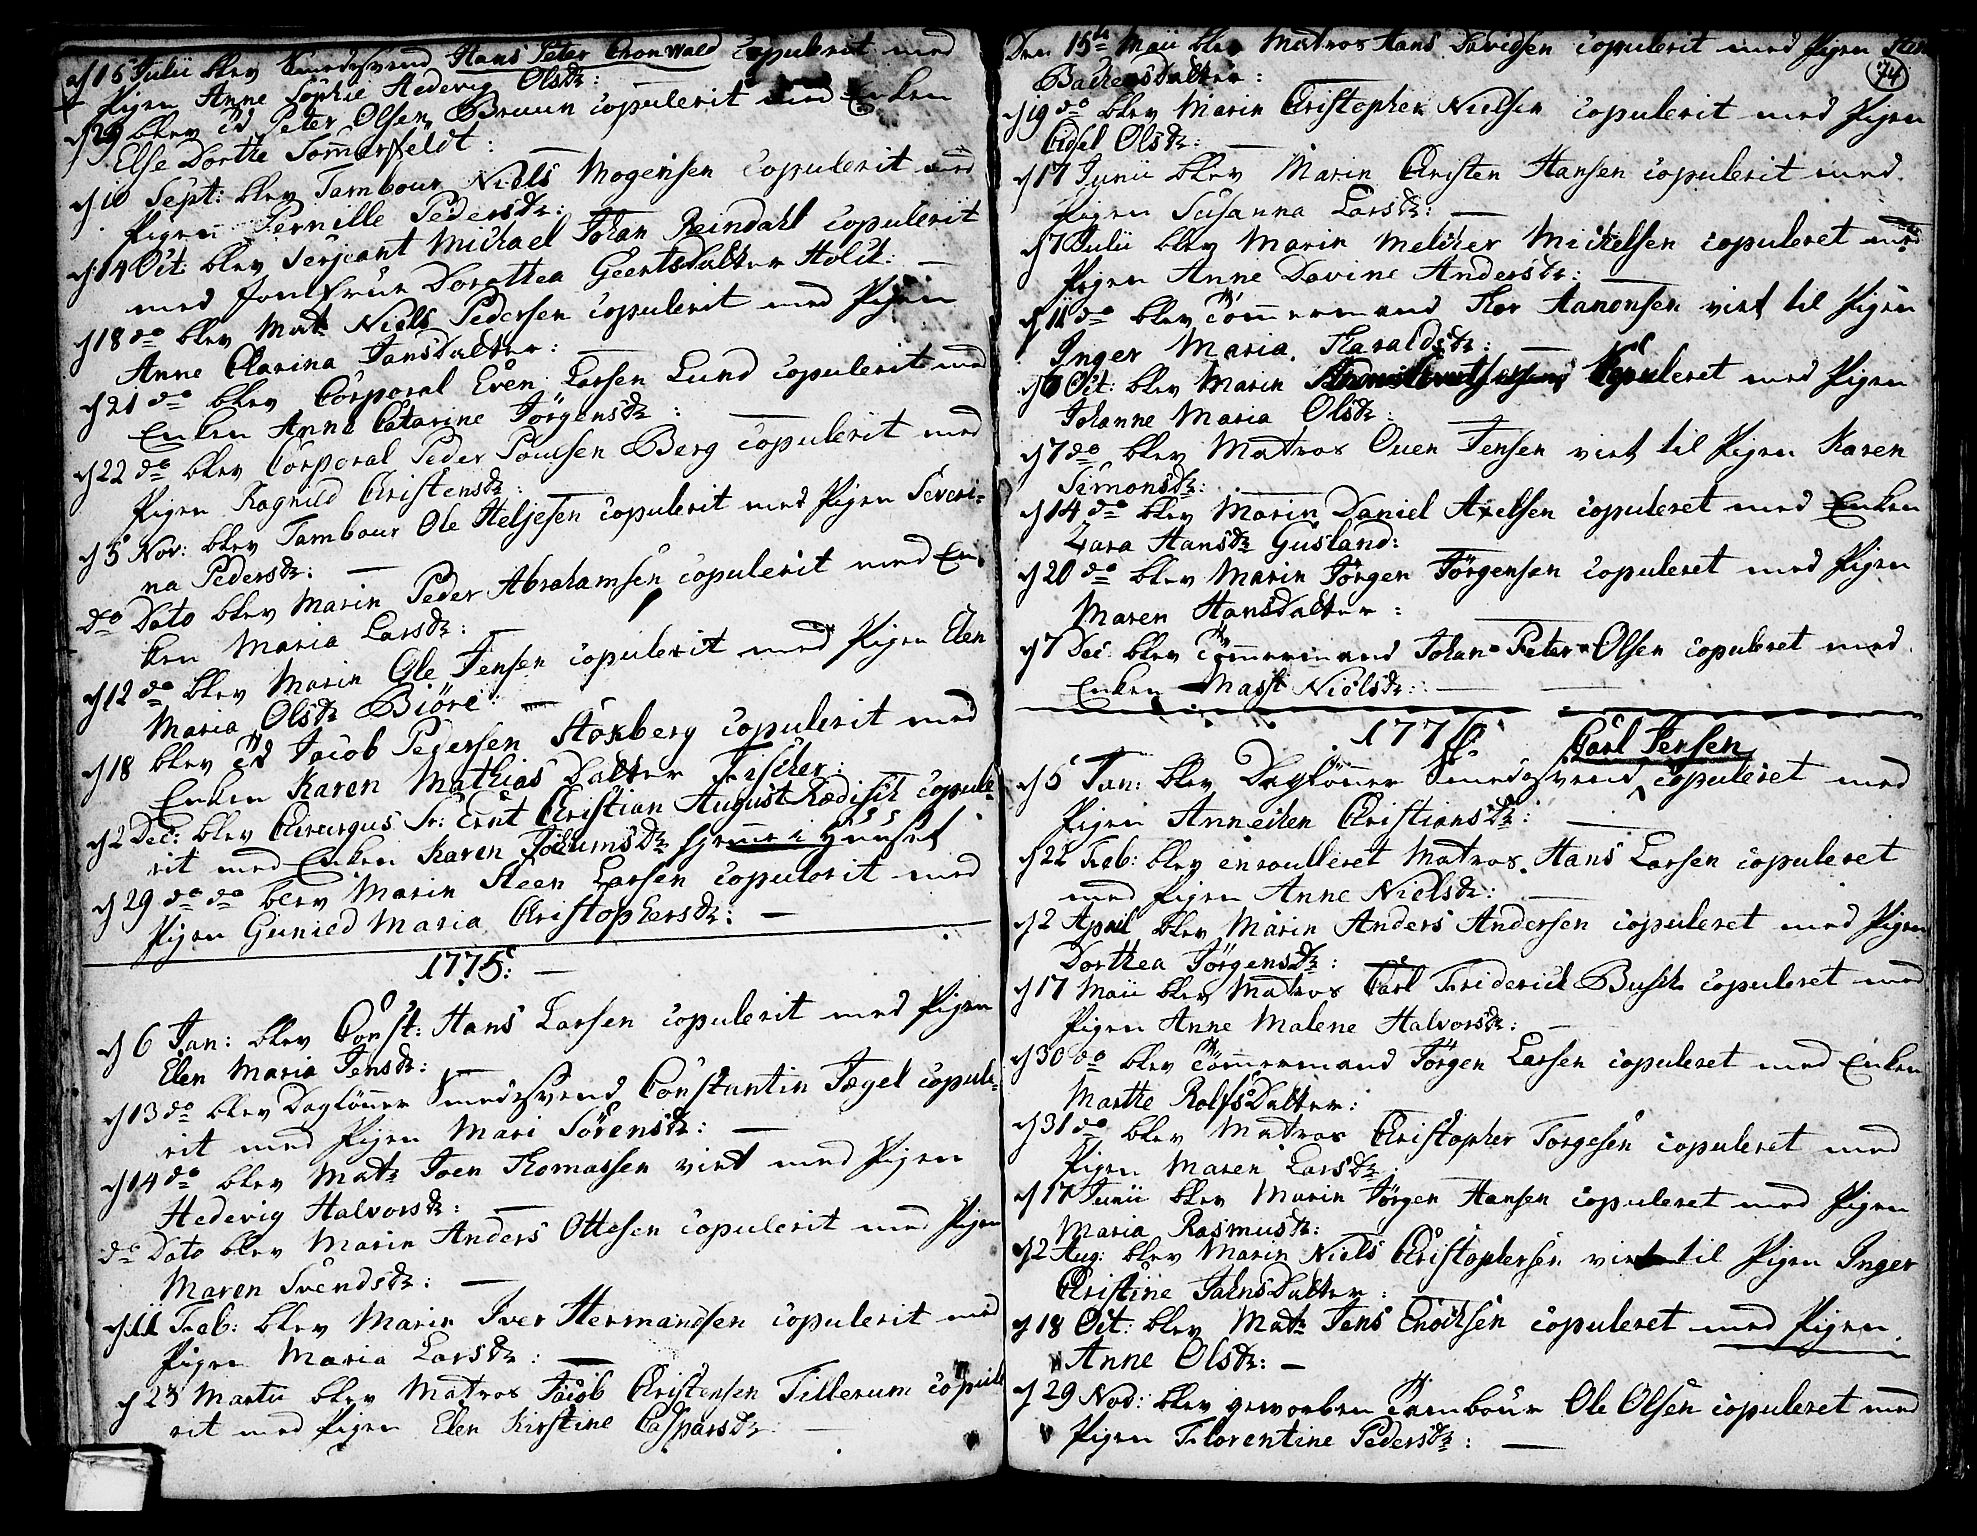 d 15 Julii blev Smedesvend Hans Peter Cronwald Copulerit med
Pigen Anne Sophie Hedevig Olsdr:
d 29 blev Peter Olsen Bruun copulerit med Enken
Else Dorthe Sommerfeldt:
d 10 Sept: blev Tambour Niels Mogensen copulerit med
Pigen Pernille Pedersdr:
d 14 Oct: blev Serjeant Michael Johan Reindahl copulerit
med Jomfrue Dorothea Geertsdatter Holst:
d 18 do blev Matr Niels Pedersen copulerit med Pigen
Anne Charina Jansdatter:
d 21 do blev Corporal Even Larsen Lund copulerit med
Enken Anne Catarine Jörgensdr:
d 22 do blev Corporal Peder Poulsen Berg copulerit med
Pigen Ragnild Christensdr:
d 5 Nov: blev Tambour Ole Heljesen copulerit med Pigen Severi-
na Pedersdr:
do Dato blev Marin Peder Abrahamsen copulerit med En-
ken Maria Larsdr:
d 12 do blev Marin Ole Jensen copulerit med Pigen Elen
Maria Olsdr Biöre
d 18 blev Jacob Pedersen Stokberg copulerit med
Enken Karen Mathias Datter Fischer:
d 2 Dec: blev Chirurgus Sr: Ernt Christian August Rædisch copule-
rit med Enken Karen Jochumsdr hjemme i Huuset
d 29 do do blev Marin Steen Larsen copulerit med
Pigen Gunied Maria Christophersdr:
1775:
d 6 Jan: blev Const: Hans Larsen copulerit med Pigen
Elen Maria Jensdr:
d 13 do blev Daglönner Smedesvend Constantin Jægel copule-
rit med Pigen Mari Sörensdr:
d 14 do blev Matr Joen Thomassen viet med Pigen
Hedevig Halvorsdr:
do Dato blev Marin Anders Ottesen copulerit med Pigen
Maren Svendsdr:
d 11 Feb: blev Marin Iver Hermandsen copulerit med
Pigen Maria Larsdr:
d 23 Martii blev Matros Jacob Christensen Tillerum copule
rit med Pigen Elen Kirstine Caspersdr
Den 15de Maii blev Matros Hans Davidsen copulerit med Pigen
74
Bachesdatter:
d 19 do blev Marin Christopher Nielsen copulerit med Pigen
Cidsel Olsdr:
d 17 Junii blev Marin Christen Hansen copulerit med
Pigen Susanna Larsdr:
d 7 Julii blev Marin Melcher Michelsen copuleret med
Pigen Anne Davine Andersdr:
d 11 do blev Tömmermand Thor Aanonsen viet til Pigen
Inger Maria Haraldsdr:
d 6 Oct: blev Marin Copuleret med Pigen
Johanne Maria Olsdr:
d 7 do blev Matros Ouen Jensen viet til Pigen Karen
Simonsdr:
d 14 do blev Marin Daniel Axelsen copuleret med Enken
Zara Hansdr Gusland:
d 20 do blev Marin Jörgen Jörgensen copuleret med Pigen
Maren Hansdatter:
d 7 Dec blev Tömmermand Johan Peter Olsen copuleret med
Enken Massi Nielsdr:
1776:
Carl Jensen
d 5 Jan: blev Daglönner Smedesvend copuleret med
Pigen Annichen Christiansdr:
d 22 Feb: blev enroulleret Matros Hans Larsen copuleret
med Pigen Anne Nielsdr:
d 2 April blev Marin Anders Andersen copuleret med Pigen
Dorthea Jörgensdr:
d 17 Maii blev Matros Carl Friderich Busch copuleret med
Pigen Anne Malene Halvorsdr:
d 30 do blev Tömmermand Jörgen Larsen copuleret med Enken
Marthe Rolfsdatter:
d 31 do blev Matros Christopher Torgesen copuleret med
Pigen Maren Larsdr:
d 17 Junii blev Marin Jörgen Hansen copuleret med Pigen
Maria Rasmusdr:
d 2 Aug: blev Marin Niels Christophersen viet til Pigen Inger
Christine Jahnsdatter:
d 18 Oct: blev Matr Jens Enochsen copuleret med Pigen
Anne Olsdr:
d 29 Nov: blev geworben Tambour Ole Olsen copuleret med
Pigen Florentine Pedersdr: